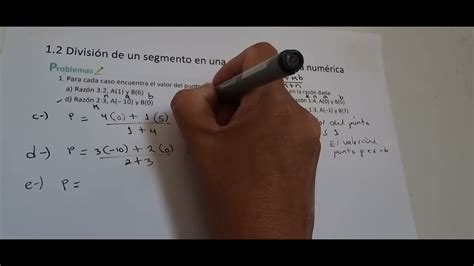 1.2 División de un segmento en una numérica
Problemas
1. Para cada caso encuentra el valor del punt en la razón dada:
a) Razón 3:2, A(1) y B(6) n 1:4, A(0) y B(5)
d) Razón 2:3, A(-10) y B(0)
c-) P = 4(0) + 1(5) / 1+4 lor del punto
s 1
d-) P = 3(-10) + 2(0) / 2+3 El valor del
punto p es -6
e-) P =